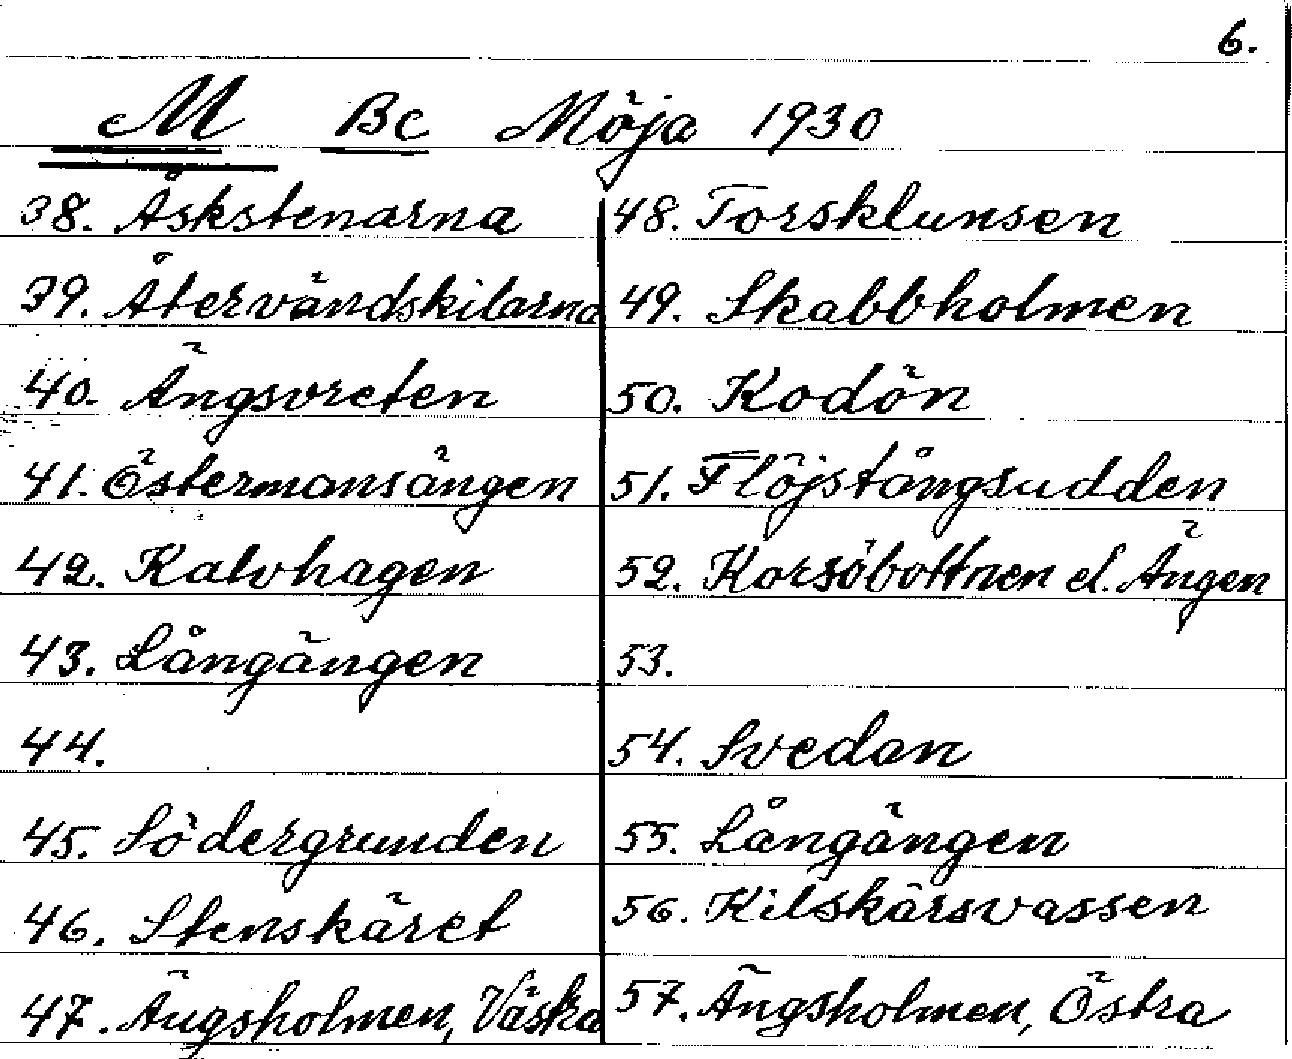 6.
M Bc Möja 1930
38. Åskstenarna
39. Återvändskilarna
40. Ängsvreten
41. Östermansängen
42. Kalvhagen
43. Långängen
44.
45. Södergrunden
46. Stenskäret
47. Ängsholmen, Västra
48. Torsklunsen
49. Skabbholmen
50. Kodön
51. Flöjstångsudden
52. Korsöbottnen el. Ängen
53.
54. Svedan
55. Långängen
56. Kilskärsvassen
57. Ängsholmen, Östra